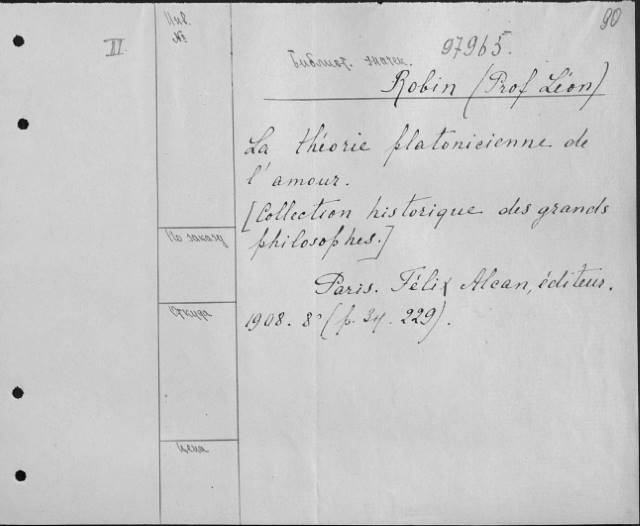 90
Инв.
№
II
97965.
Библиот. значек.
Robin (Prof Léon)
La théorie platonicienne de
l'amour.
[Collection historique des grands
philosophes.]
По заказу
Paris. Félix Alcan, éditeur.
Откуда
1908. 8° (p. 229).
Цена